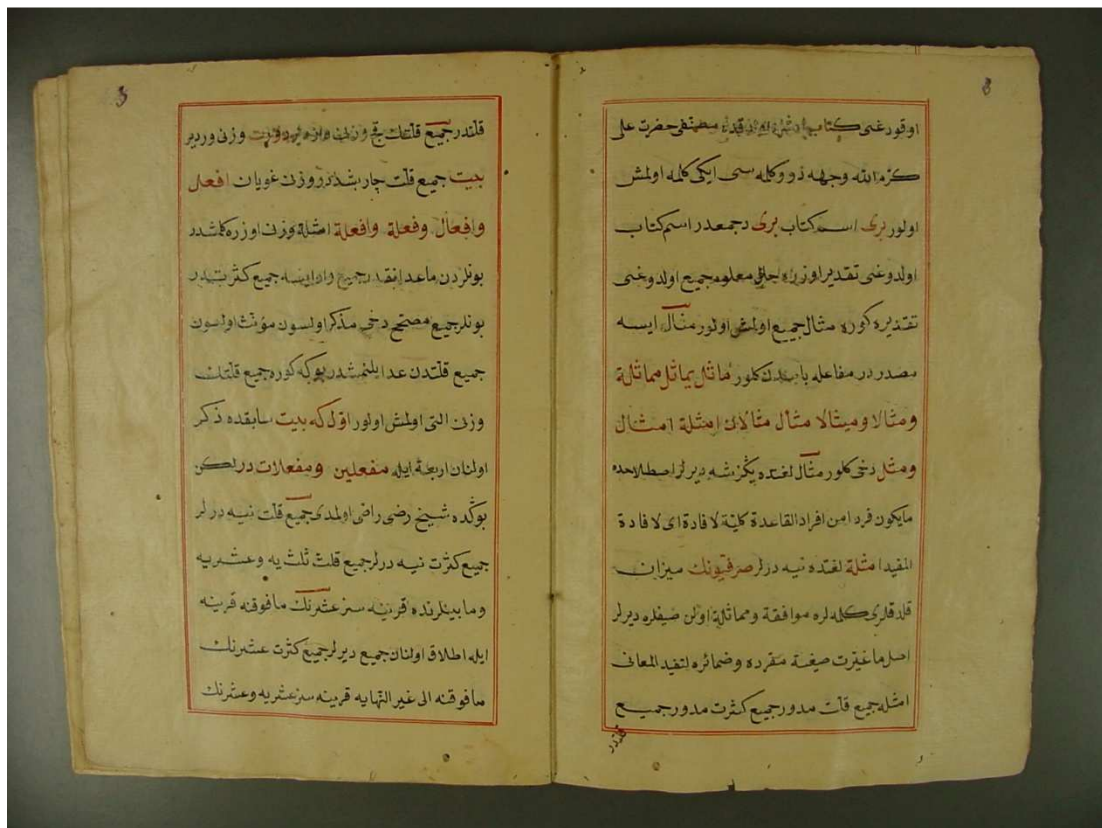 اوقورغنى كتاب مصنفى حضرت على
كرم الله وجهه ذو وكلمه سى ايكى كلمه اولمش
اولور برى اسم كتاب برى دجمعدر اسم كتاب
اولدوغنى تقدير اوزره معلوم جميع اولدوغنى
تقديره كوره مثال جميع اولمش اولور مثال ايسه
مصدر در مفاعله بابندن كلور ماثل يماثل مماثلة
ومثالا وميثالا مثال مثالان امثلة امثال
ومثل دخى كلور مثال لغتده يكزشه ديرلر اصطلاحده
مايكون فردا من افراد القاعدة كلية لافادة اى لافادة
المفيد امثلة لغتده نيه درلر صرفيونك ميزان
قلدقلرى كلمه لره موافقة ومماثلة اولن صيغلره ديرلر
اصل ماغيرت صيغة مفرده وضمائره لتفيد المعانى
امثله جميع قلت مدور جميع كثرت مدور جميع
قلتدر
قلتدر جميع قلتك قچ وزنى وزنى وردير
بيت جميع قلت چار بشد در وزن غويان افعل
وافعال وفعلة وافعلة امثلة وزنى اوزره كلمشدر
بونلردن ماعدا جميع وار ايسه جميع كثرتدر
بونلر جميع مصحح دخى مذكر اولسون مؤنث اولسون
جميع قلتدن عد ايلنمشدر بوكه كوره جميع قلتك
وزنى التى اولمش اولور اول كه بيت سابقده ذكر
اولنان اربعة ايله مفعلين ومفعلات در لكن
بوكده شيخ رضى راضى اولمدى جميع قلت نيه درلر
جميع كثرت نيه درلر جميع قلت ثلث يه وعشريه
وما بينلرنده قرينه سز عشرنك مافوقنه قرينه
ايله اطلاق اولنان جميع ديرلر جميع كثرت عشرنك
مافوقنه الى غير النهايه قرينه سز عشريه وعشرنك